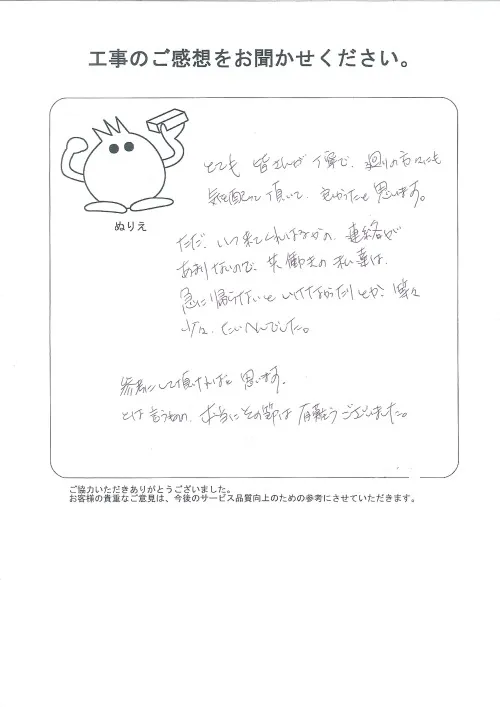 工事のご感想をお聞かせください。
ぬりえ
とても 皆さんが丁寧で、廻りの方々にも
気を配って頂いて、良かったと思います。
ただ、いつ来てくれはるかの、連絡が
あまりないので、共働きの私達は、
急に帰らないといけなかったりとか、等々
少々、たいへんでした。
参考にして頂ければと 思います。
とは言うものの、本当にその節は 有難うございました。
ご協力いただきありがとうございました。
お客様の貴重なご意見は、今後のサービス品質向上のための参考にさせていただきます。